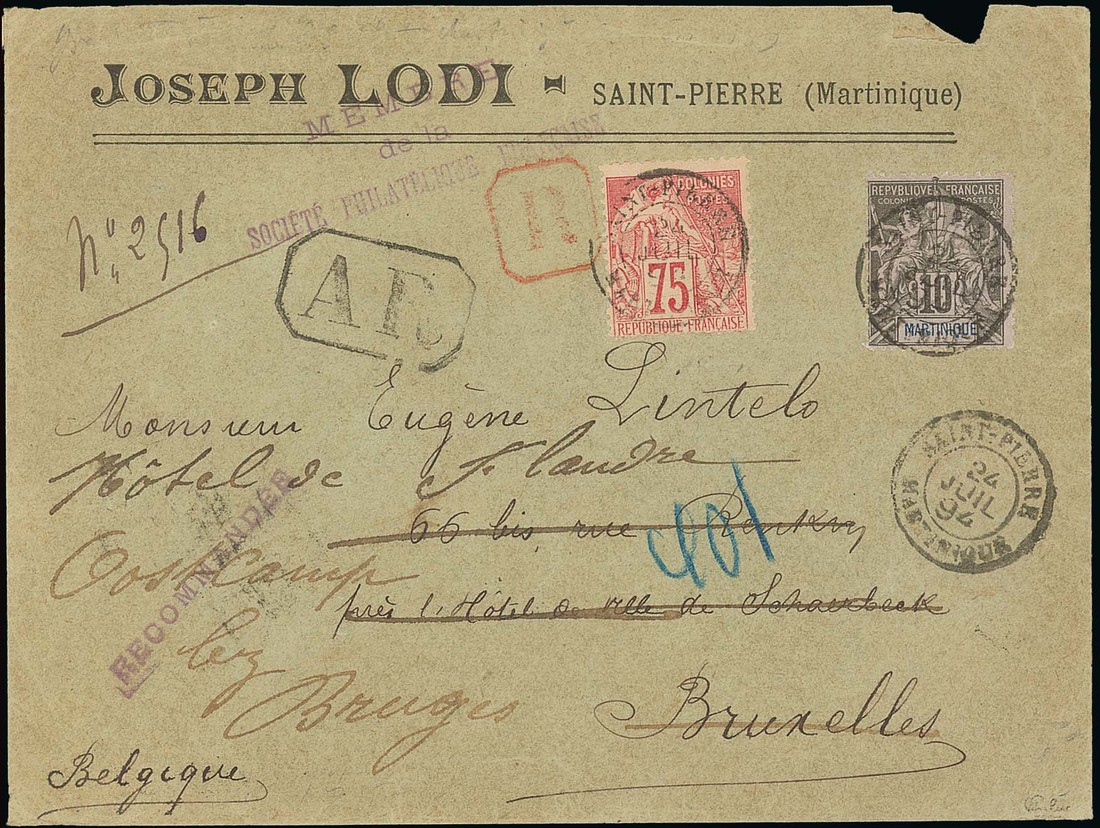 JOSEPH LODI - SAINT-PIERRE (Martinique)
MEMBRE
de la
SOCIÉTÉ PHILATÉLIQUE FRANÇAISE
R
COLONIES
POSTES
75
REPUBLIQUE-FRANÇAISE
SAINT-PIERRE
24
JUIL
REPVBLIQVE FRANÇAISE
COLONIES POSTES
10
MARTINIQUE
No 2516
A F
Monsieur Eugène Lintelo
Hôtel de Flandre
66 bis rue
401
SAINT-PIERRE
24
JUIL
94
MARTINIQUE
RECOMMANDER
Oostcamp
près l'Hôtel de ville de Schaerbeck
lez
Bruges
Bruxelles
Belgique